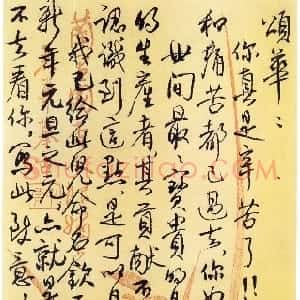 頌華：
你真是辛苦了!!
和痛苦都過去你
世间最寶貴的
的生產者其貢献不
認識到這點是可
我已给此兒命名欽
新年元旦之元，亦就是
不去看你，寫此致意